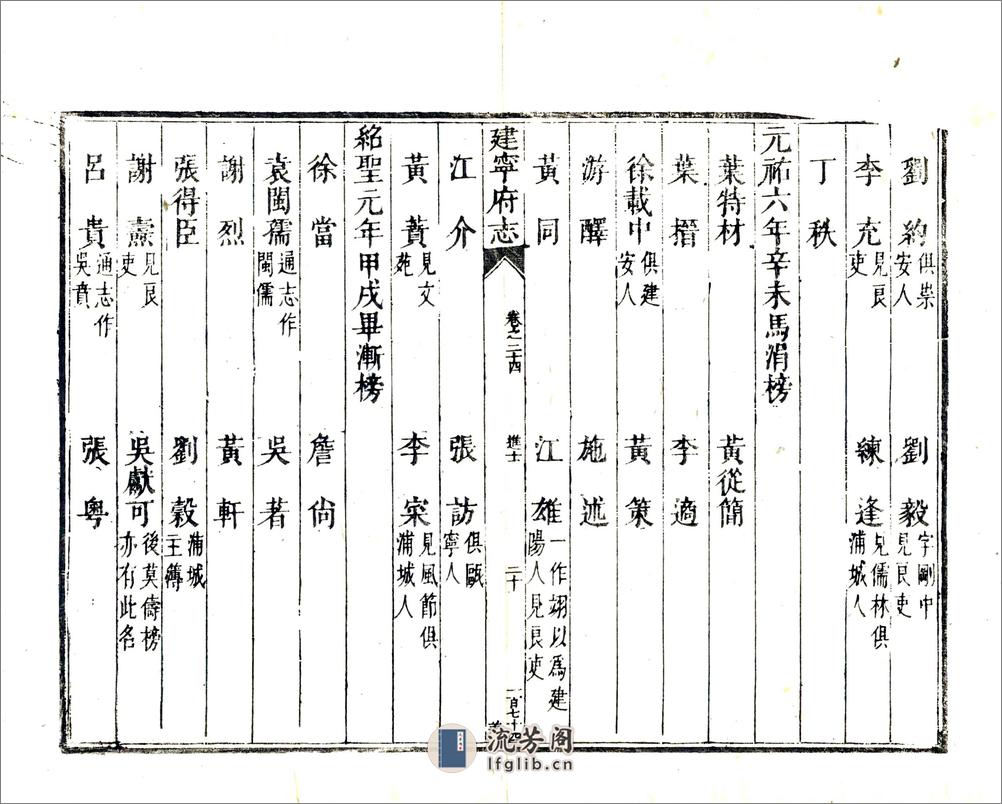 劉約 俱崇安人 劉毅 字剛中見良吏
李充 見良吏 練逢 見儒林俱浦城人
丁秩
元祐六年辛未馬涓榜
葉特材 黃從簡
葉搢 李適
徐載中 俱建安人 黃策
游醳 施述
黃同 江雄 一作翊以為建陽人見良吏
建寧府志 卷之二十四 進士 二十 一百七十四
江介 張訪 俱甌寧人
黃蕡 見文苑 李寀 見風節俱浦城人
紹聖元年甲戌畢漸榜
徐當 詹尙
袁閩孺 通志作閩儒 吳著
謝烈 黃軒
張得臣 劉穀 浦城主簿
謝燾 見良吏 吳獻可 後莫儔榜亦有此名
呂貴 通志作吳賁 張粤
流芳阁
lfglib.cn